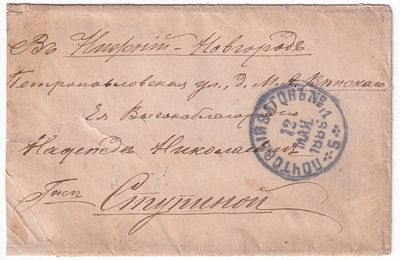 Въ Нижній-Новгородъ
Петропавловская ул., д. М. А.
Ея Высокоблагородію
Надеждѣ Николаевнѣ
Гжѣ Ступиной
ПОЧТОВЫЙ ВАГОНЪ № 1
12
МАЙ
188
*5*